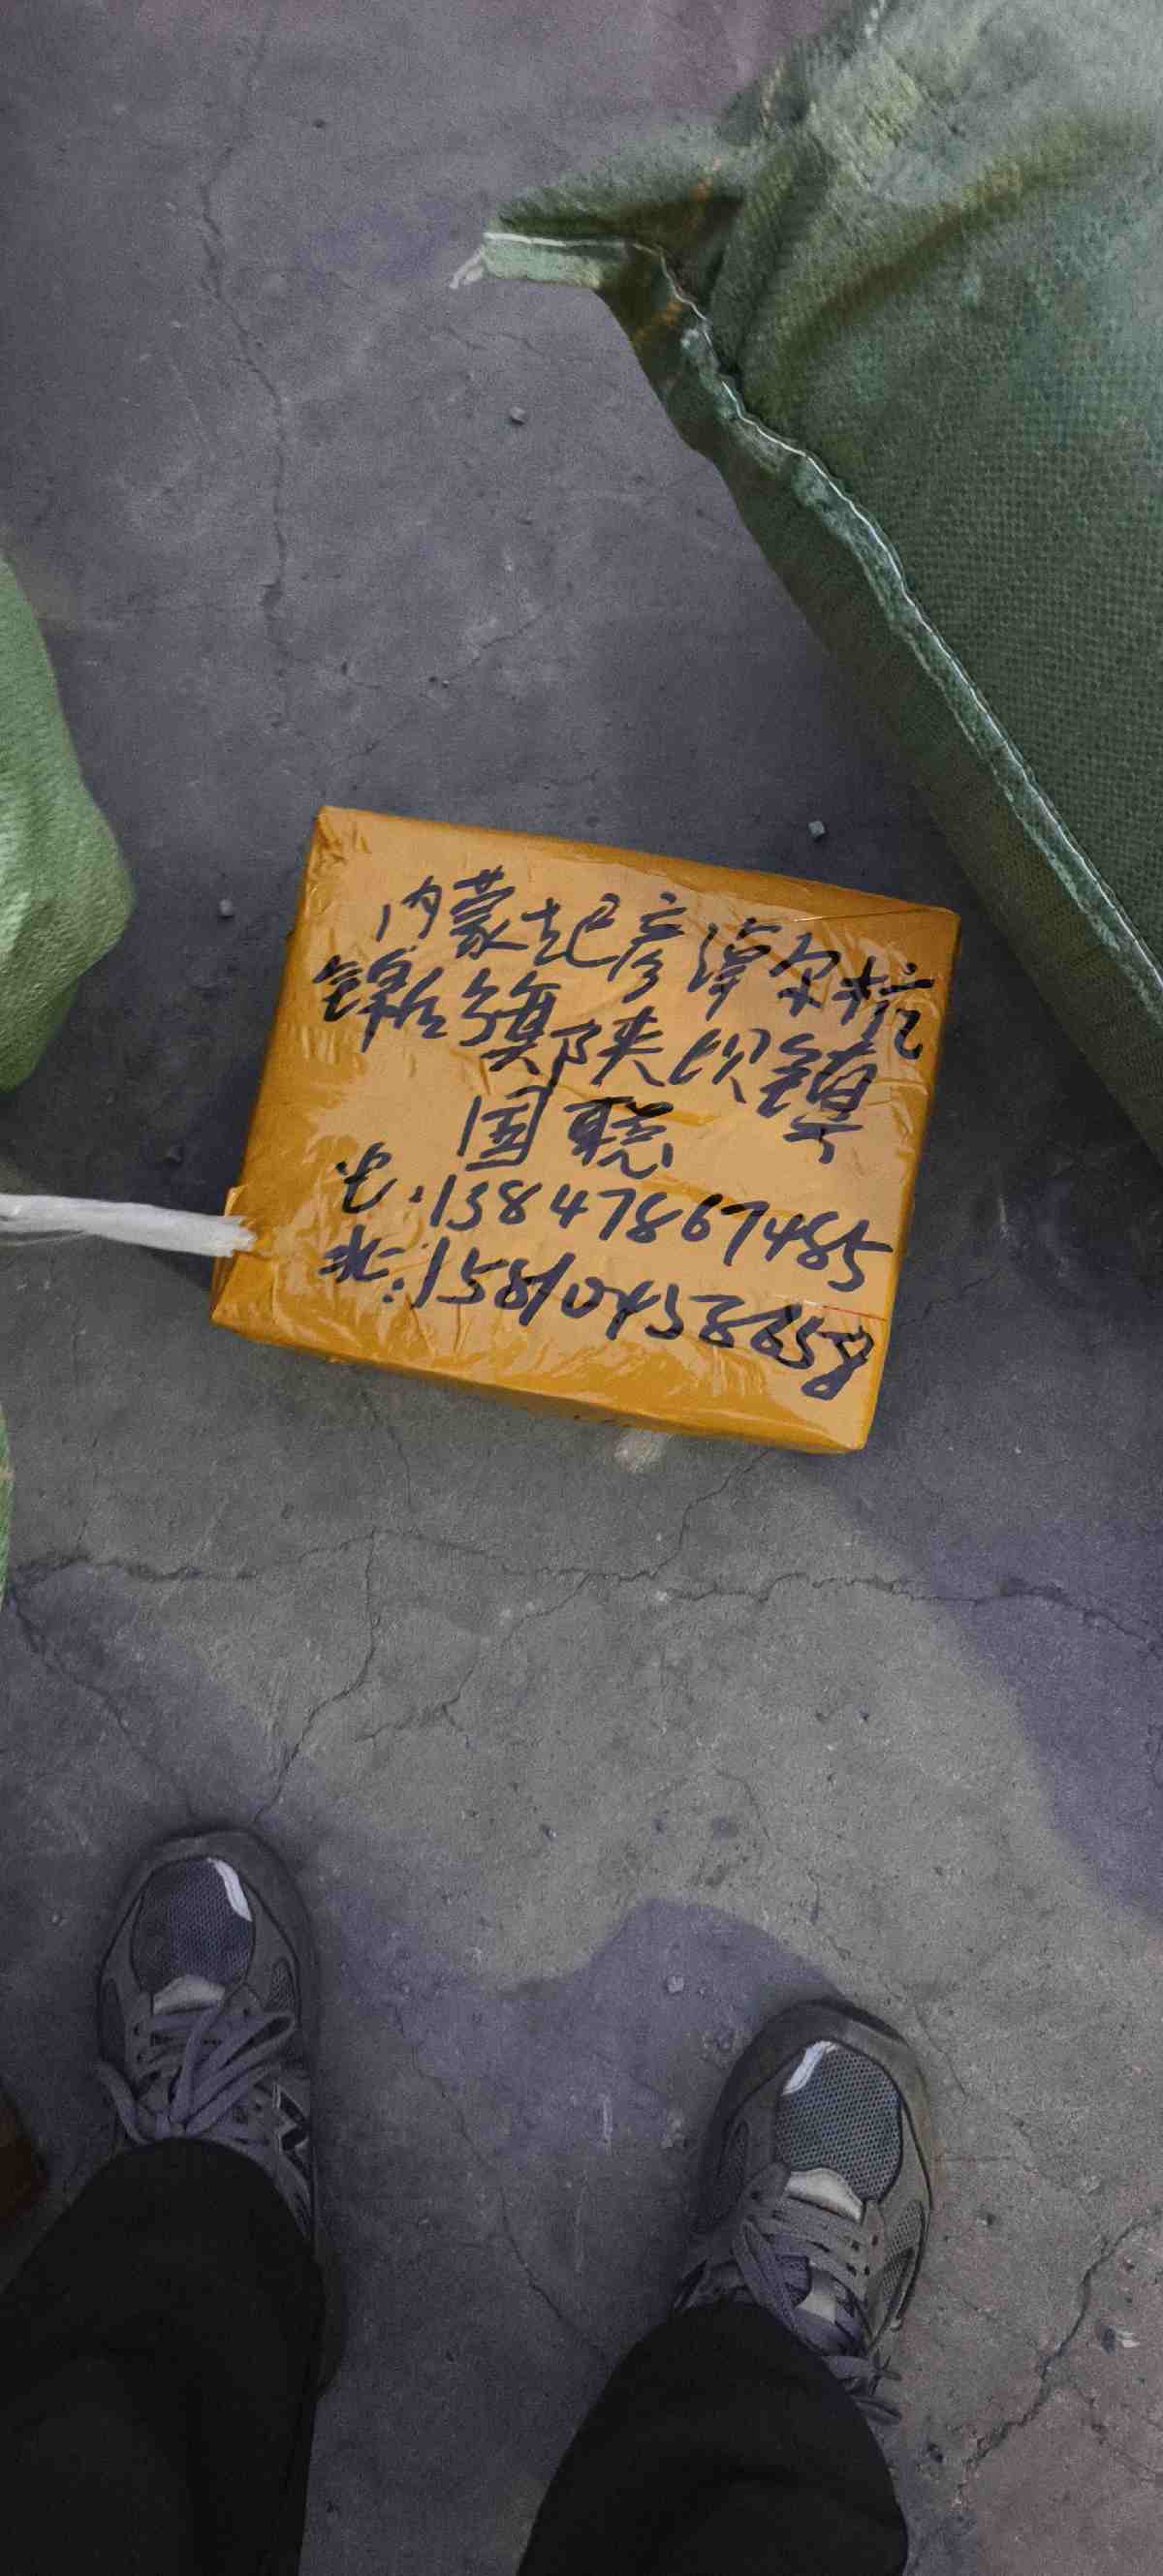 内蒙古巴彦淖尔杭
锦后旗陕坝镇
国
电:13847867485
北:15810458658